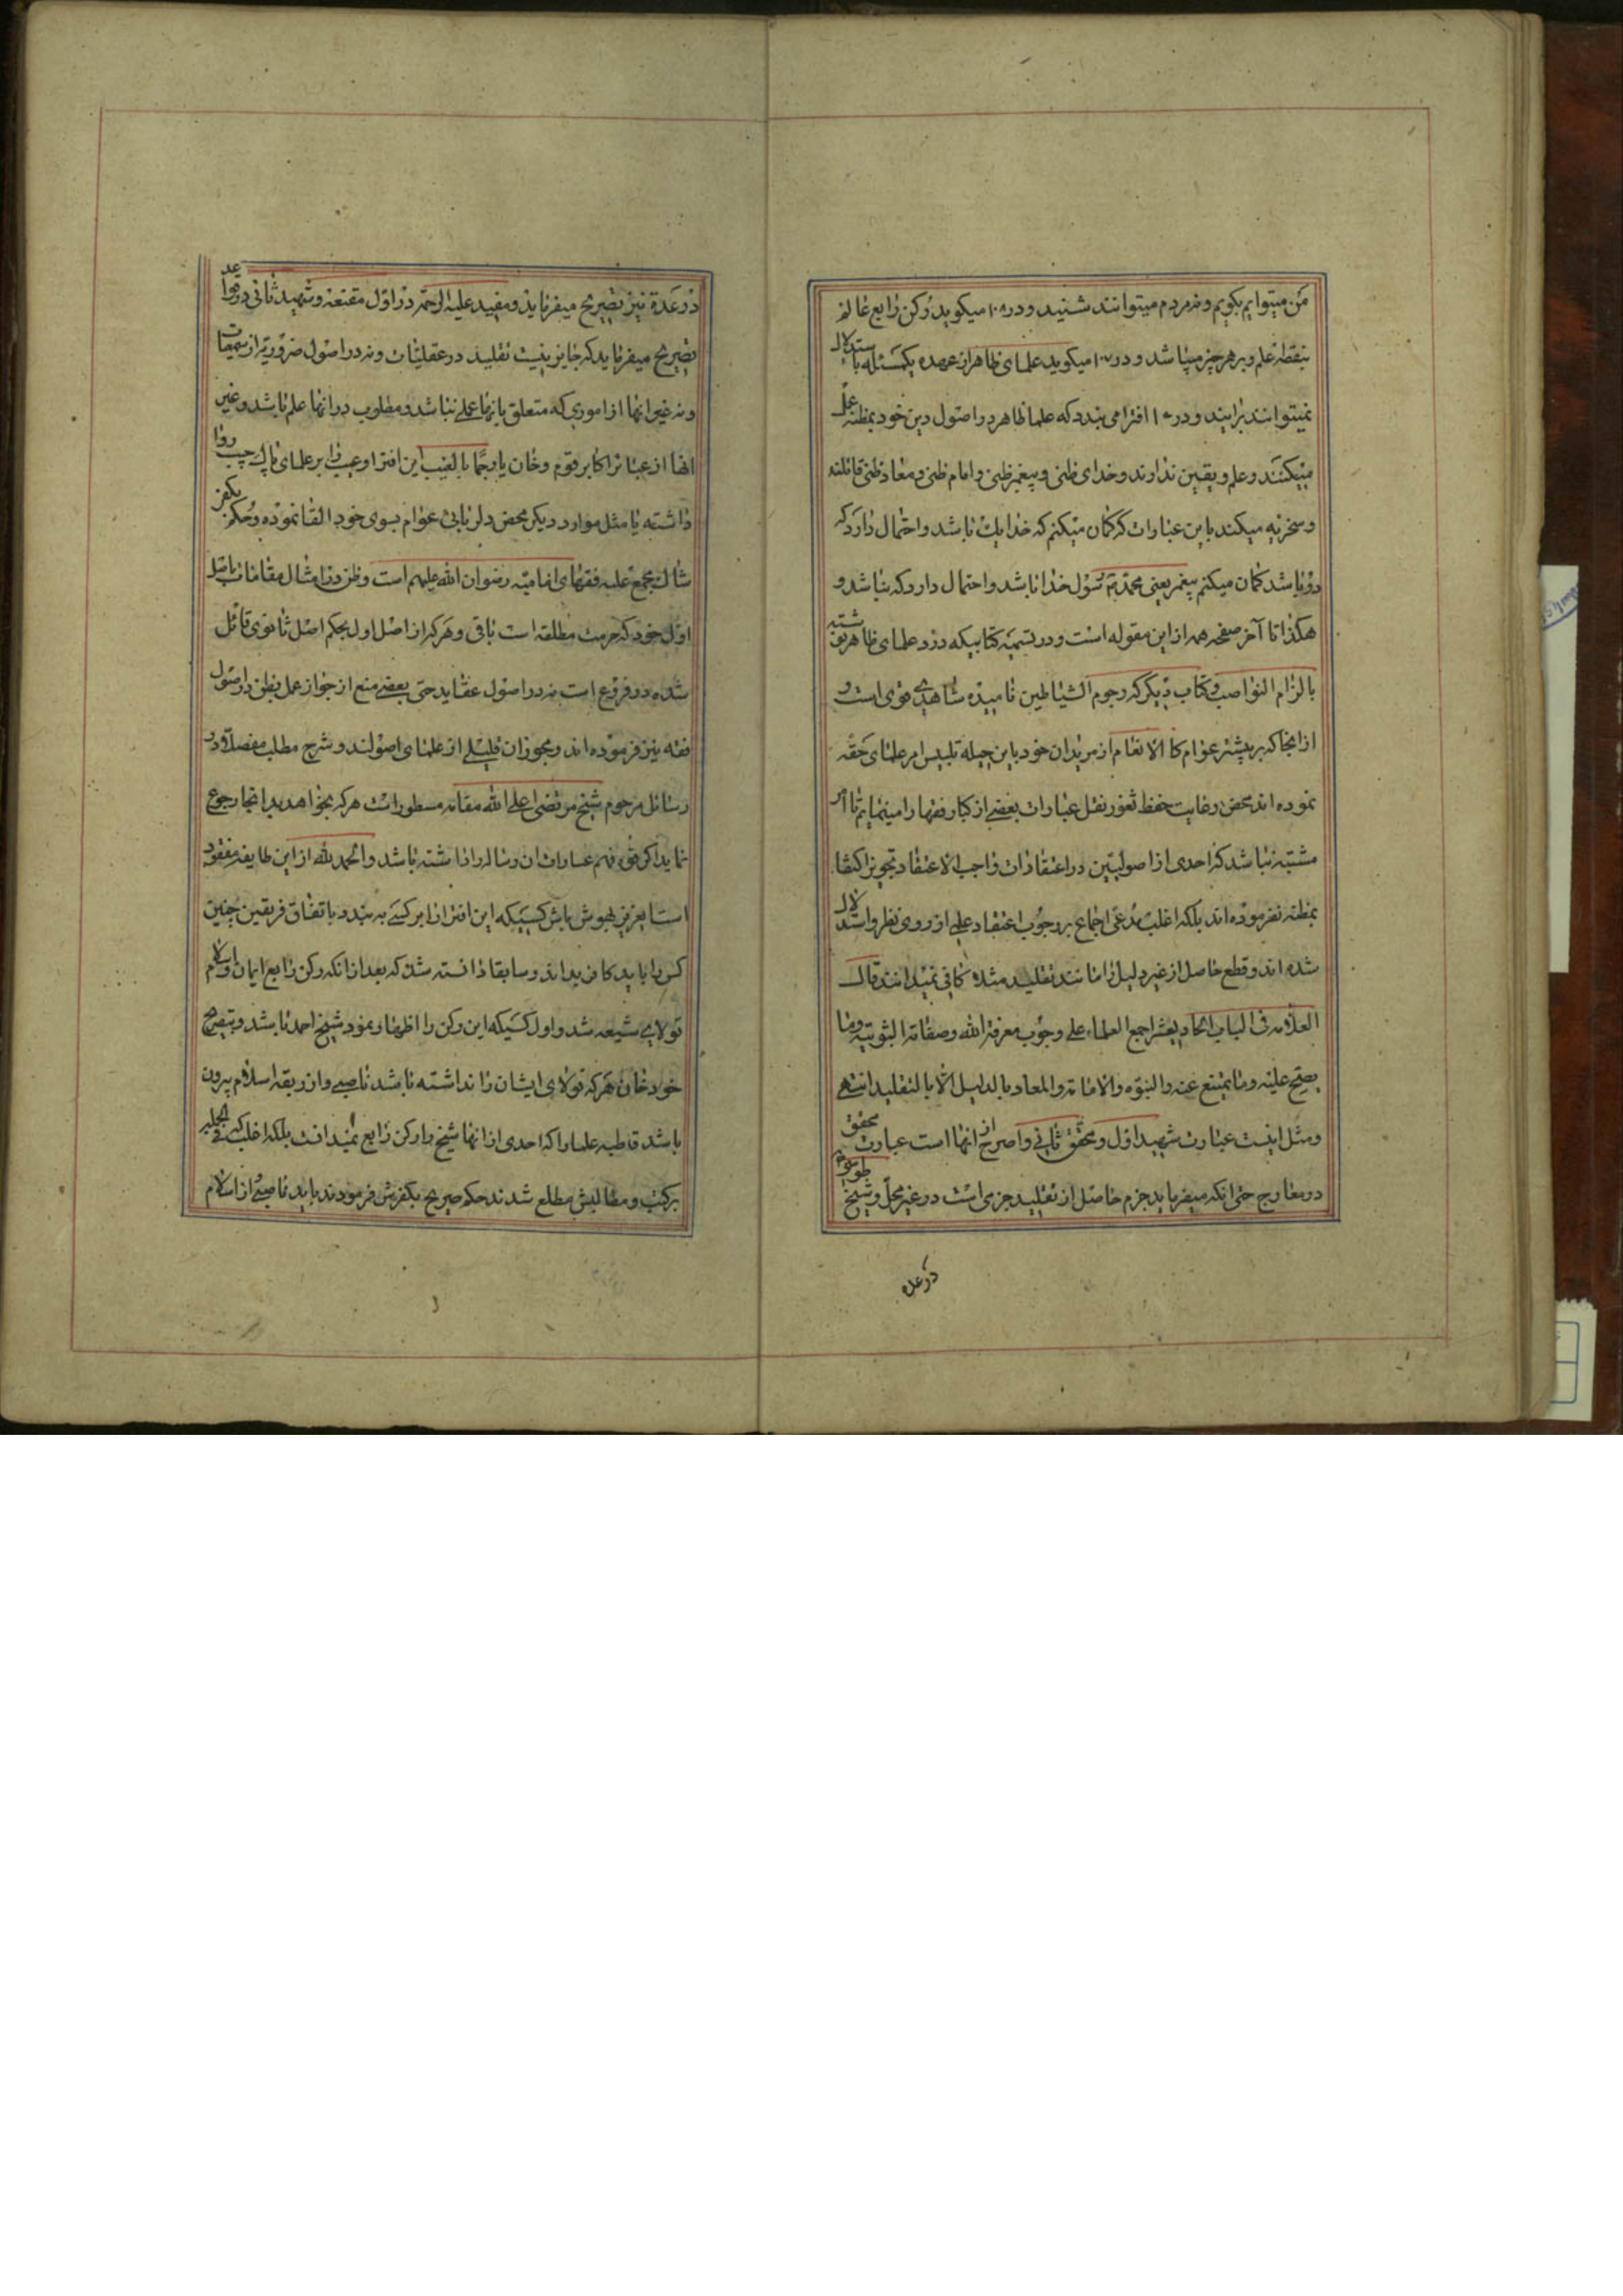 من میتوانم بگویم ونه مردم میتوانند شنید و در ۱۰۸ میگوید رکن رابع عالم
بنقطه علم وبر هر چیز میباشد و در ۱۰۷ میگوید علمای ظاهر از عهده یکمسئله باستدلال
نمیتوانند برایند و در ۱۰ افترا می بندد که علما ظاهر در اصول دین خود بمظنه عمل
میکنند وعلم ویقین ندارند وخدای ظنی وپیغمبر ظنی وامام ظنی ومعاد ظنی قائلند
وسخریه میکند باین عبارات که گمان میکنم که خدا یک باشد واحتمال دارد که
دو باشد گمان میکنم پیغمبر یعنی محمد رسول خدا باشد واحتمال دارد که نباشد و
هکذا تا آخر صفحه همه از این مقوله است ودر تسمیه کتابیکه در رد علمای ظاهر نوشته
بالزام النواصب وکتاب دیگر که رجوم الشیاطین نامیده شاهدی قوی است و
از انجا که بر بیشتر عوام کالانعام از مریدان خود باین حیله تلبیس امر علمای حقه
نموده اند محض رعایت حفظ ثغور نقل عبارات بعضی از کبار فقها را مینمایم تا امر
مشتبه نباشد که احدی از اصولیین در اعتقادات واجب الاعتقاد تجویز اکتفا
بمظنه نفرموده اند بلکه اغلب مدعی اجماع بر وجوب اعتقاد علمی از روی نظر واستدلال
شده اند وقطع حاصل از غیر دلیل را مانند تقلید مثلا کافی نمیدانند قال
العلامه فی الباب الحادیعشر اجمع العلماء علی وجوب معرفة الله وصفاته الثبوتیه وما
یصح علیه وما یمتنع عنه والنبوة والامامة والمعاد بالدلیل لا بالتقلید انتهی
ومثل اینست عبارت شهید اول ومحقق ثانی واصرح از انها است عبارت محقق
در معارج حتی انکه میفرماید جزم حاصل از تقلید جزمی است در غیر محل وشیخ طوسی
در عده
در عدة نیز تصریح میفرماید ومفید علیه الرحمه در اول مقنعه وشهید ثانی در قواعد
تصریح میفرماید که جایز نیست تقلید در عقلیات ونه در اصول ضروریه از سمعیات
ونه غیر انها از اموری که متعلق بانها عملی نباشد ومطلوب در انها علم باشد وغیر
انها از عبائر اکابر قوم وخان یا رجما بالغیب این افترا وعیب را بر علمای پاک جیب روا
داشته یا مثل موارد دیگر محض دلربائی عوام بسوی خود القا نموده وحکم بکفر
شاک مجمع علیه فقهای امامیه رضوان الله علیهم است وظن در امثال مقامات باصل
اول خود که حرمت مطلقه است باقی وهر که از اصل اول بحکم اصل ثانوی قائل
شده در فروع است نه در اصول عقاید حتی بعضی منع از جواز عمل بظن در اصول
فقه نیز فرموده اند ومجوزان قلیلی از علمای اصولند وشرح مطلب مفصلا در
رسائل مرحوم شیخ مرتضی اعلی الله مقامه مسطور است هر که بخواهد بدانجا رجوع
نماید اگر قوه فهم عبارات ان رساله را داشته باشد والحمد لله از این طایفه مفقود
است ایعزیز بهوش باش کسیکه این افترا را بر کسی به بندد باتفاق فریقین چنین
کس را باید کافر بداند وسابقا دانسته شد که بعد از انکه رکن رابع ایمان واسلام
تولای شیعه شد واول کسیکه این رکن را اظهار نمود شیخ احمد باشد وبتصریح
خود خان هر که تولای ایشان را نداشته باشد ناصبی واز ربقه اسلام بیرون
باشد قاطبه علما را که احدی از انها شیخ را رکن رابع نمیدانست بلکه اغلب که فی الجمله
بر کتب ومطالبش مطلع شدند حکم صریح بکفرش فرمودند باید ناصبی از اسلام